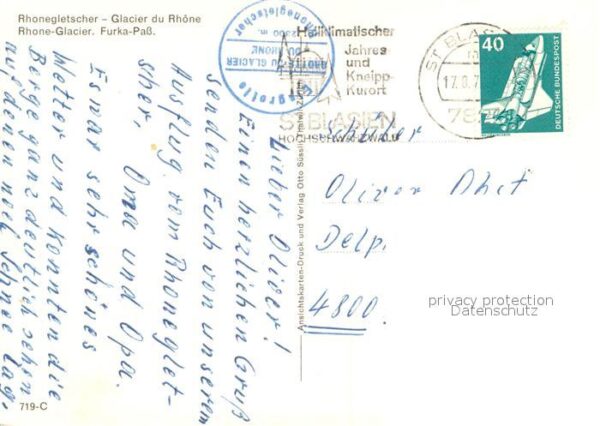 Rhonegletscher – Glacier du Rhône
Rhone-Glacier. Furka-Paß.
Rhonegletscher
2300 m.
GLACIER
DU RHONE
Heilklimatischer
Jahres
und
Kneipp-
Kurort
ST BLASIEN
HOCHSCHWARZWALD
ST BLASIEN
40
DEUTSCHE BUNDESPOST
Lieber Oliver!
Einen herzlichen Gruß
senden Euch von unserem
Ausflug vom Rhoneglet-
scher,
Oma und Opa.
Es war sehr schönes
Wetter und konnten die
Berg ganz deutlich sehen
auf denen noch Schnee lag.
Ansichtskarten-Druck und Verlag Otto Süssli
Schüler
Oliver
Delp.
4800.
privacy protection
Datenschutz
719-C